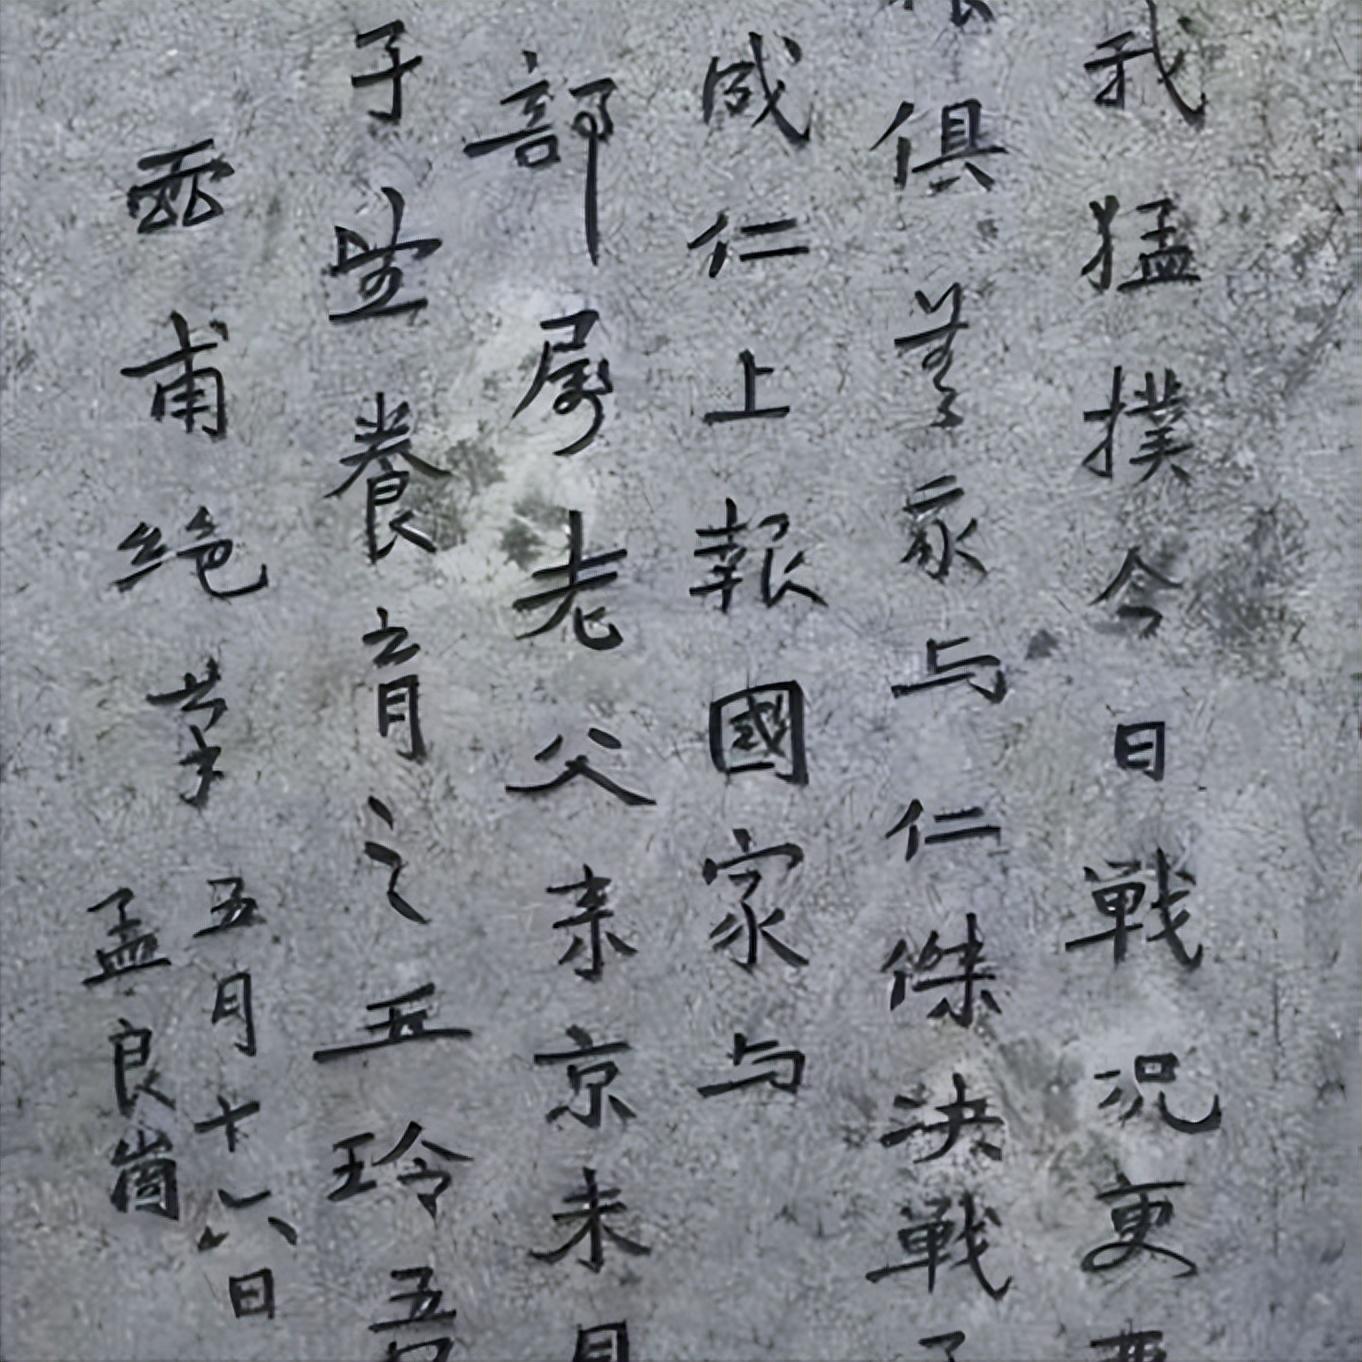 我猛撲今日戦況更
俱無我与仁傑決戦
成仁上報國家与
部屬老父来京未
子望養育之玉玲吾
霊甫絕筆
五月十六日
孟良崮